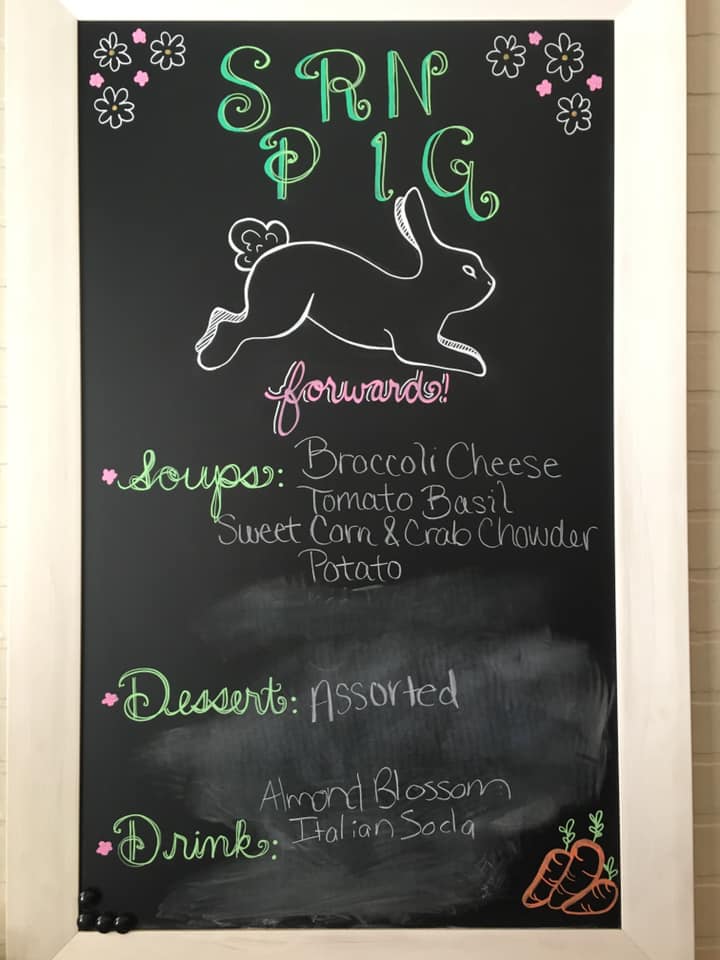 SRN
PIG
forward!
Soups: Broccoli Cheese
Tomato Basil
Sweet Corn & Crab Chowder
Potato
Dessert: Assorted
Almond Blossom
Drink: Italian Soda